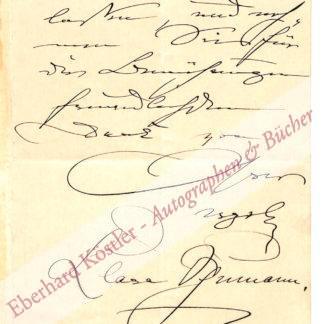 lassen und noch
für
die Bemühungen
freundlichsten
Dank von
Ihrer
ergeb
Clara Schumann.
Eberhard Köstler - Autographen & Bücher